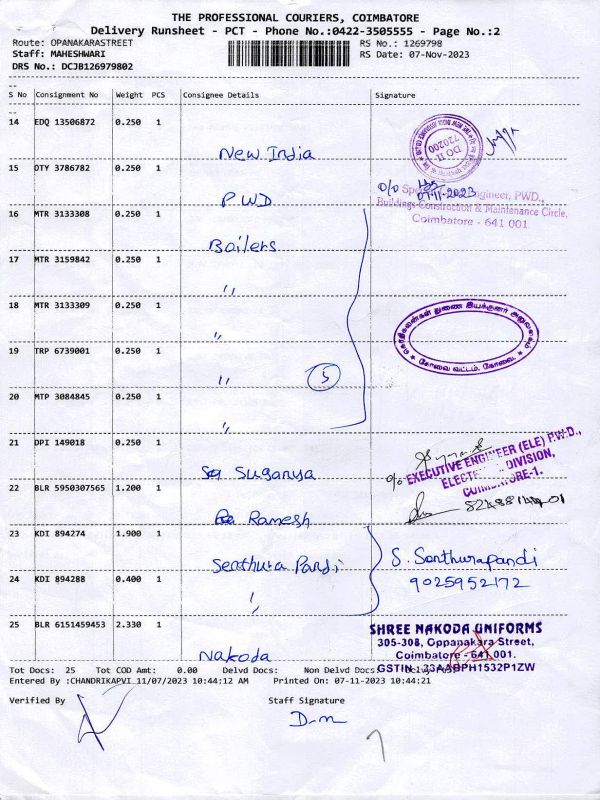 THE PROFESSIONAL COURIERS, COIMBATORE
Delivery Runsheet - PCT - Phone No.:0422-3505555 - Page No.:2
Route: OPANAKARASTREET RS No.: 1269798
Staff: MAHESHWARI RS Date: 07-Nov-2023
DRS No.: DCJB126979802
S No Consignment No Weight PCS Consignee Details Signature
14 EDQ 13506872 0.250 1
New India
15 OTY 3786782 0.250 1
PWD
Engineer, PWD.,
Buildings Construction & Maintenance Circle,
Coimbatore - 641 001
07-11-2023
16 MTR 3133308 0.250 1
Boilers
17 MTR 3159842 0.250 1
"
18 MTR 3133309 0.250 1
"
19 TRP 6739001 0.250 1
" 5
20 MTP 3084845 0.250 1
"
கோவை வட்டம், கோவை.
21 DPI 149018 0.250 1
Suganya
EXECUTIVE ENGINEER (ELE) P.W.D.,
DIVISION,
22 BLR 5950307565 1.200 1
Ramesh
23 KDI 894274 1.900 1
Senthura Pandi
S. Senthurapandi
9025952172
24 KDI 894288 0.400 1
"
25 BLR 6151459453 2.330 1
Nakoda
SHREE NAKODA UNIFORMS
305-308, Oppanakara Street,
Coimbatore - 641 001.
GSTIN
Tot Docs: 25 Tot COD Amt: 0.00 Delvd Docs: Non Delvd Docs:
Entered By :CHANDRIKAPVI 11/07/2023 10:44:12 AM Printed On: 07-11-2023 10:44:21
Verified By Staff Signature